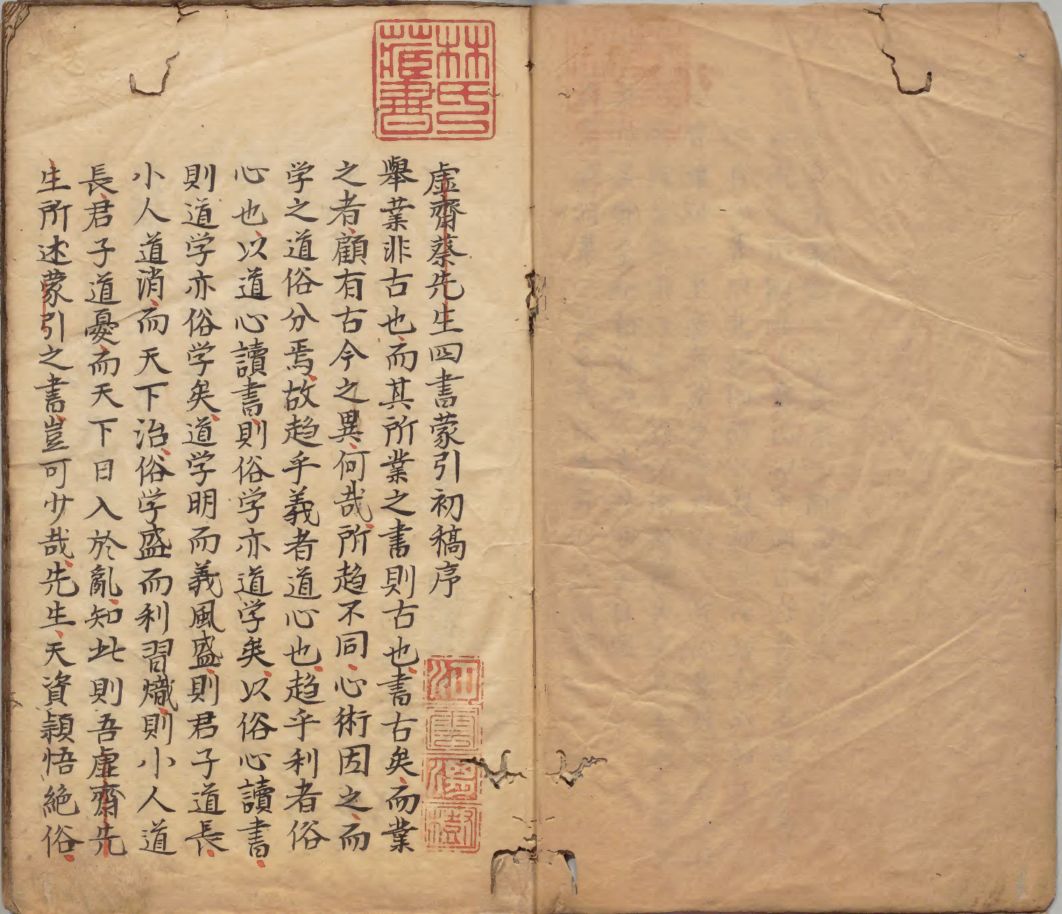 虛齋蔡先生四書蒙引初稿序
舉業非古也而其所業之書則古也書古矣而業
之者顧有古今之異何哉所趋不同心術因之而
学之道俗分焉故趋乎義者道心也趋乎利者俗
心也以道心讀書則俗学亦道学矣以俗心讀書
則道学亦俗学矣道学明而義風盛則君子道長
小人道消而天下治俗学盛而利習熾則小人道
長君子道憂而天下日入於亂知此則吾虛齋先
生所述蒙引之書豈可少哉先生天資穎悟絶俗
林氏藏書